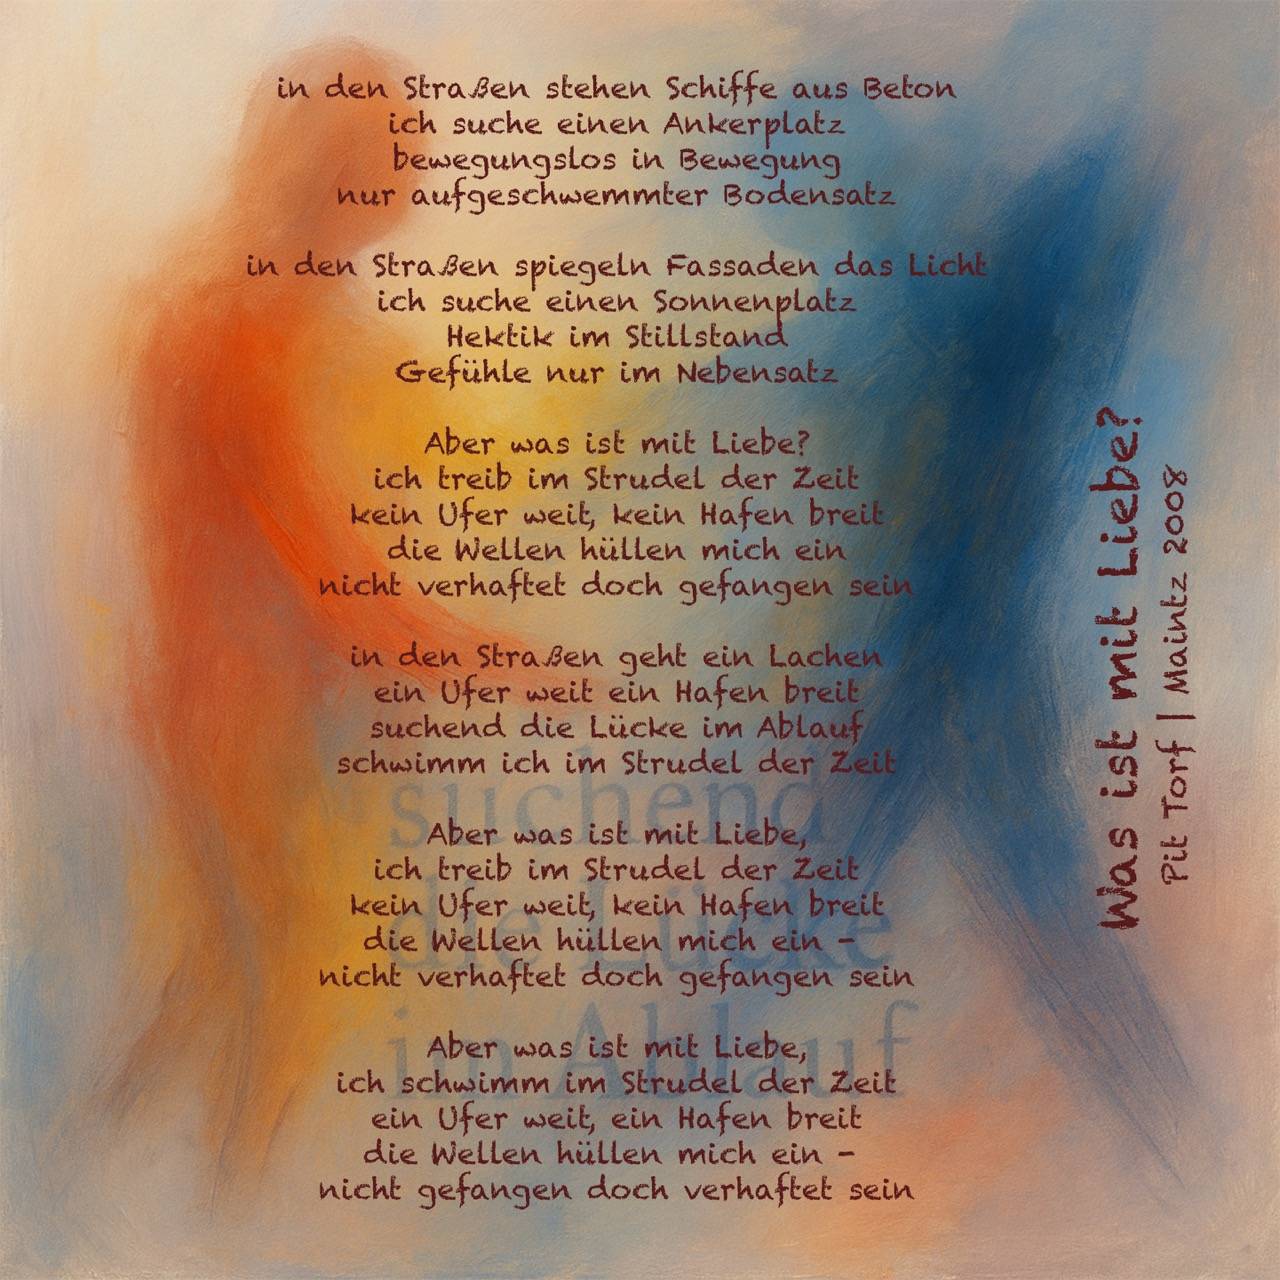 in den Straßen stehen Schiffe aus Beton
ich suche einen Ankerplatz
bewegungslos in Bewegung
nur aufgeschwemmter Bodensatz
in den Straßen spiegeln Fassaden das Licht
ich suche einen Sonnenplatz
Hektik im Stillstand
Gefühle nur im Nebensatz
Aber was ist mit Liebe?
ich treib im Strudel der Zeit
kein Ufer weit, kein Hafen breit
die Wellen hüllen mich ein
nicht verhaftet doch gefangen sein
in den Straßen geht ein Lachen
ein Ufer weit ein Hafen breit
suchend die Lücke im Ablauf
schwimm ich im Strudel der Zeit
Aber was ist mit Liebe,
ich treib im Strudel der Zeit
kein Ufer weit, kein Hafen breit
die Wellen hüllen mich ein -
nicht verhaftet doch gefangen sein
Aber was ist mit Liebe,
ich schwimm im Strudel der Zeit
ein Ufer weit, ein Hafen breit
die Wellen hüllen mich ein -
nicht gefangen doch verhaftet sein
suchend
die Lücke
im Ablauf
Was ist mit Liebe?
Pit Torf | Maintz 2008